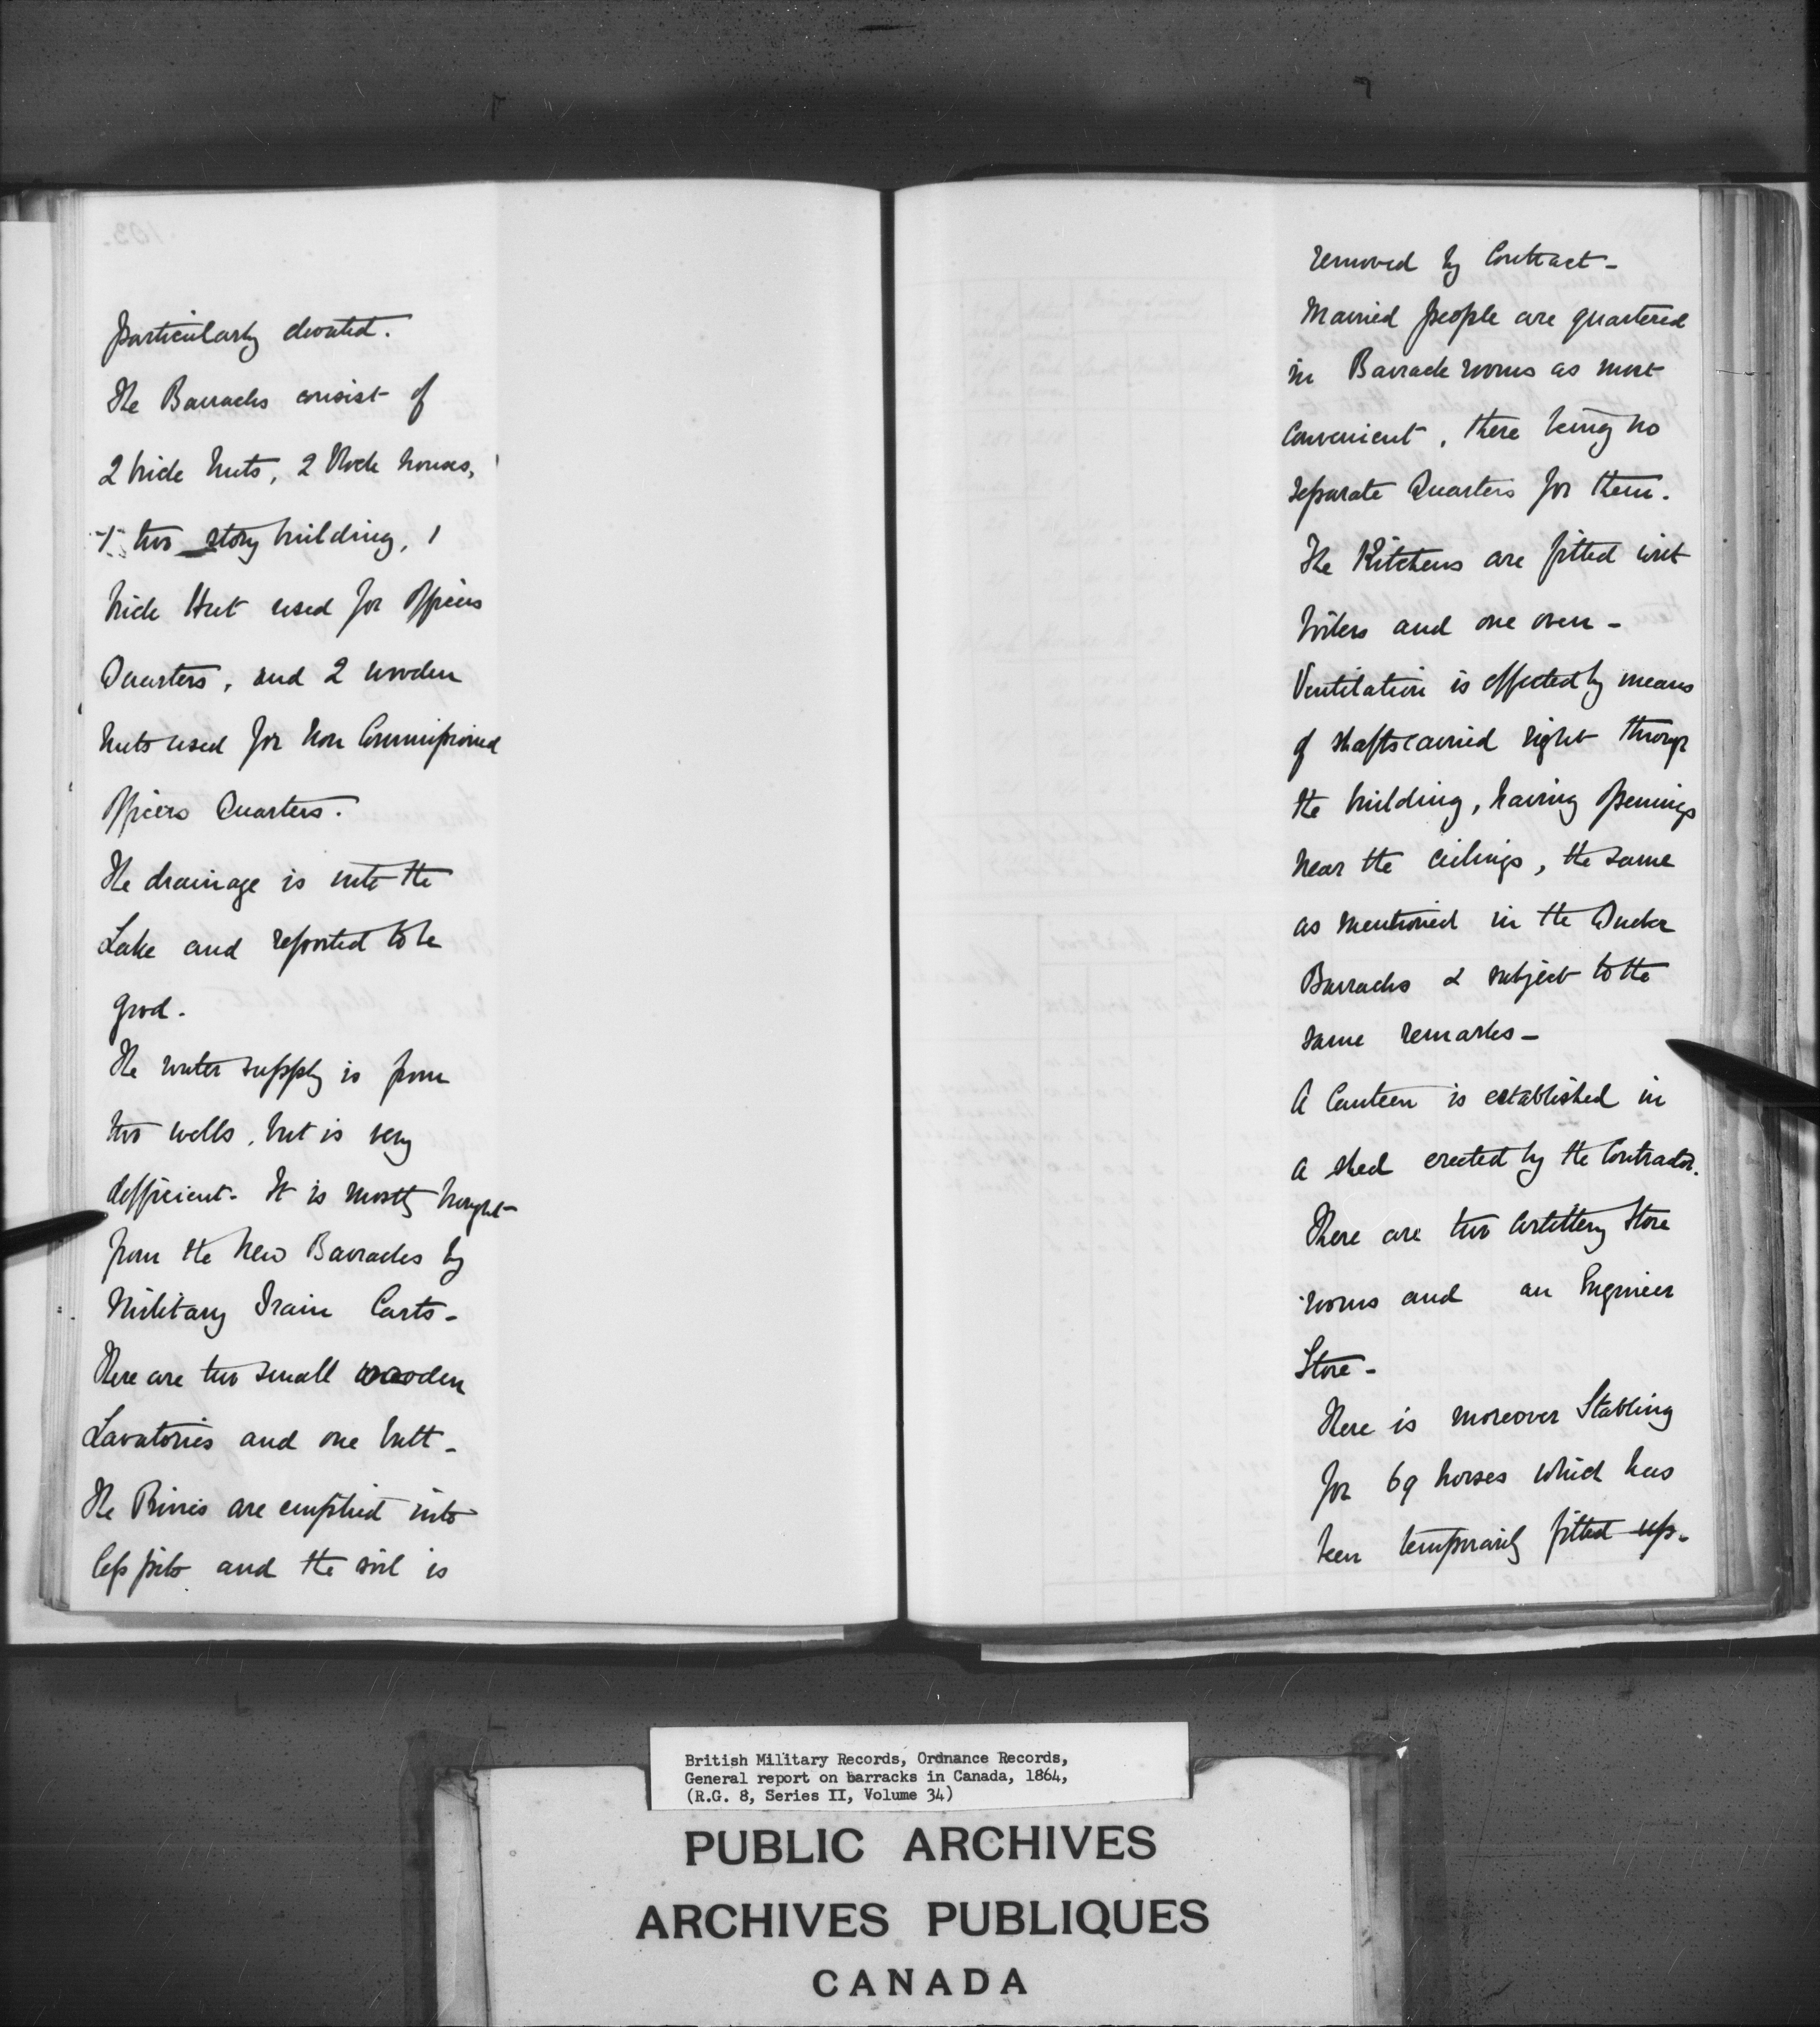 particularly elevated.
The Barracks consist of
2 brick huts, 2 Block houses,
1 two story building, 1
brick Hut used for Officers
Quarters, and 2 wooden
huts used for Non Commissioned
Officers Quarters.
The drainage is into the
Lake and reported to be
good.
The water supply is from
two wells, but is very
defficient. It is mostly brought
from the New Barracks by
Military Train Carts -
There are two small wooden
Lavatories and one batt -
The Privies are emptied into
Cess pits and the soil is
removed by Contract -
Married people are quartered
in Barrack rooms as most
convenient, there being no
separate Quarters for them.
The Kitchens are fitted with
boilers and one oven -
Ventilation is effected by means
of shafts carried right through
the building, having openings
near the ceilings, the same
as mentioned in the
Barracks & subject to the
same remarks -
A Canteen is established in
a shed erected by the Contractor.
There are two Artillery Store
rooms and an Engineer
Store -
There is moreover Stabling
for 69 horses which has
been temporarily fitted up.
British Military Records, Ordnance Records,
General report on barracks in Canada, 1864,
(R.G. 8, Series II, Volume 34)
PUBLIC ARCHIVES
ARCHIVES PUBLIQUES
CANADA